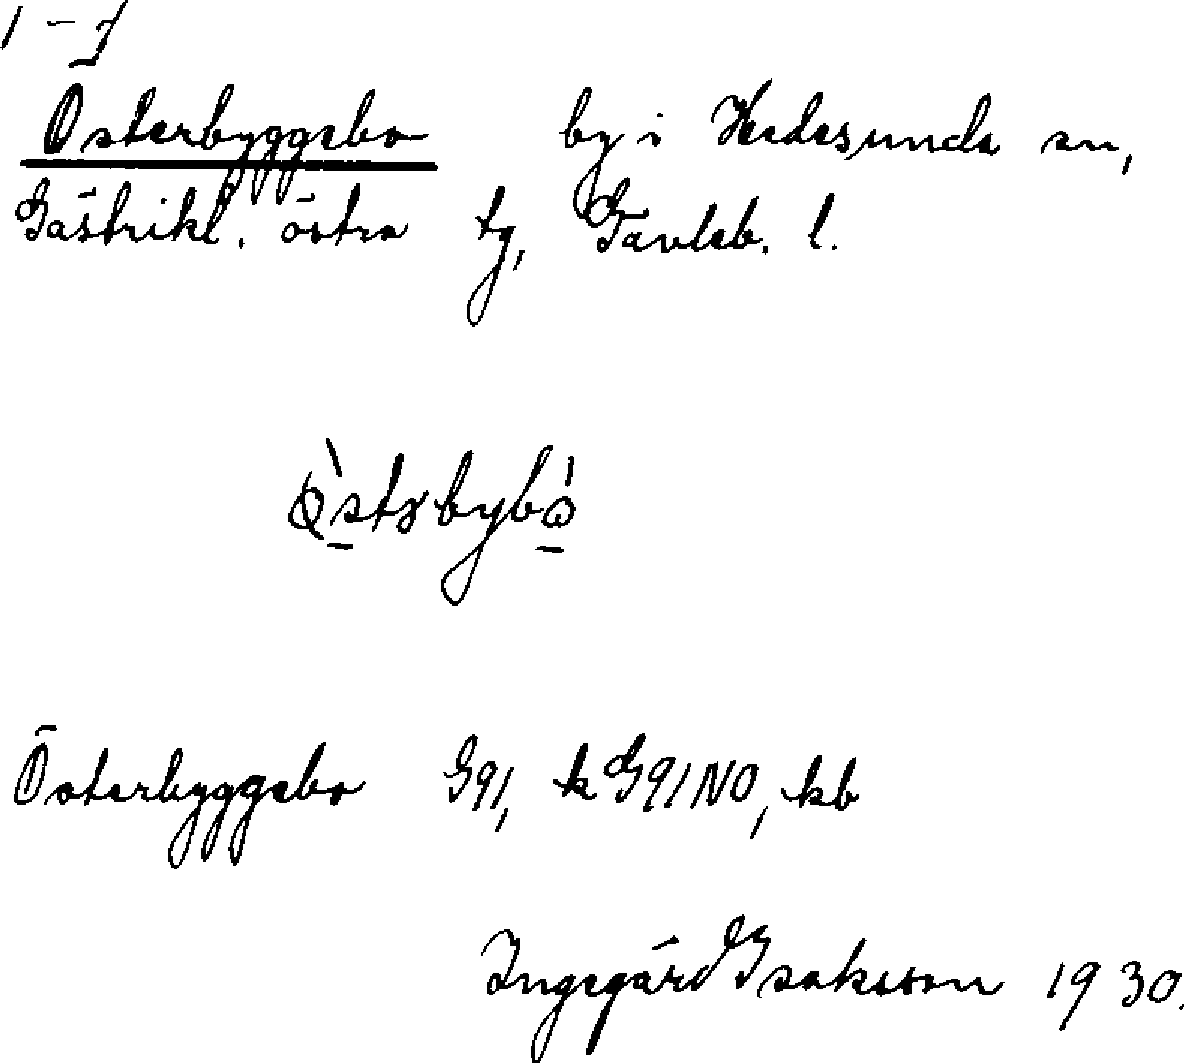 1-7
Österbyggebo by i Hedesunda sn,
Gästrikl. östra tg, Gävleb. l.
Österbyggebo G91, k G91NO, kb
Ingegärd Isaksson 1930.